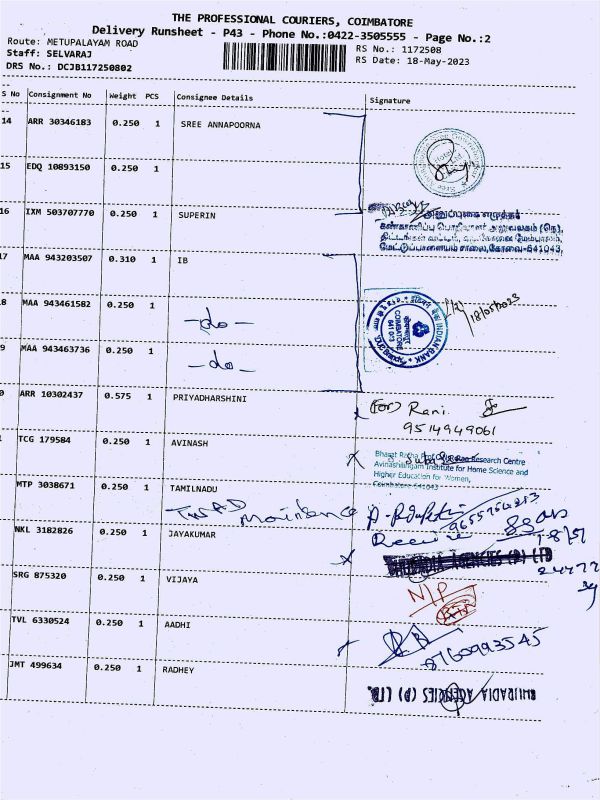 THE PROFESSIONAL COURIERS, COIMBATORE
Delivery Runsheet - P43 - Phone No.:0422-3505555 - Page No.:2
Route: METUPALAYAM ROAD
Staff: SELVARAJ
DRS No.: DCJB117250802
RS No.: 1172508
RS Date: 18-May-2023
S No Consignment No Weight PCS Consignee Details Signature
14 ARR 30346183 0.250 1 SREE ANNAPOORNA
15 EDQ 10893150 0.250 1
16 IXM 503707770 0.250 1 SUPERIN
அனுப்புகை எழுத்தர்
கண்காணிப்பு பொறியாளர் அலுவலகம் (நெ),
மேட்டுப்பாளையம் சாலை, கோவை-641043.
17 MAA 943203507 0.310 1 IB
18/05/2023
8 MAA 943461582 0.250 1 -do-
INDIAN BANK
COIMBATORE
641 043
9 MAA 943463736 0.250 1 -do-
0 ARR 10302437 0.575 1 PRIYADHARSHINI
(For) Rani.
9514949061
1 TCG 179584 0.250 1 AVINASH
Bharat Ratna Prof Research Centre
Avinashilingam Institute for Home Science and
Higher Education for Women,
Coimbatore 641043
MTP 3038671 0.250 1 TAMILNADU
TWAD
NKL 3182826 0.250 1 JAYAKUMAR
BHURADIA AGENCIES (P) LTD
24772
SRG 875320 0.250 1 VIJAYA
N/P
TVL 6330524 0.250 1 AADHI
8760993545
JMT 499634 0.250 1 RADHEY
BHURADIA AGENCIES (P) LTD.